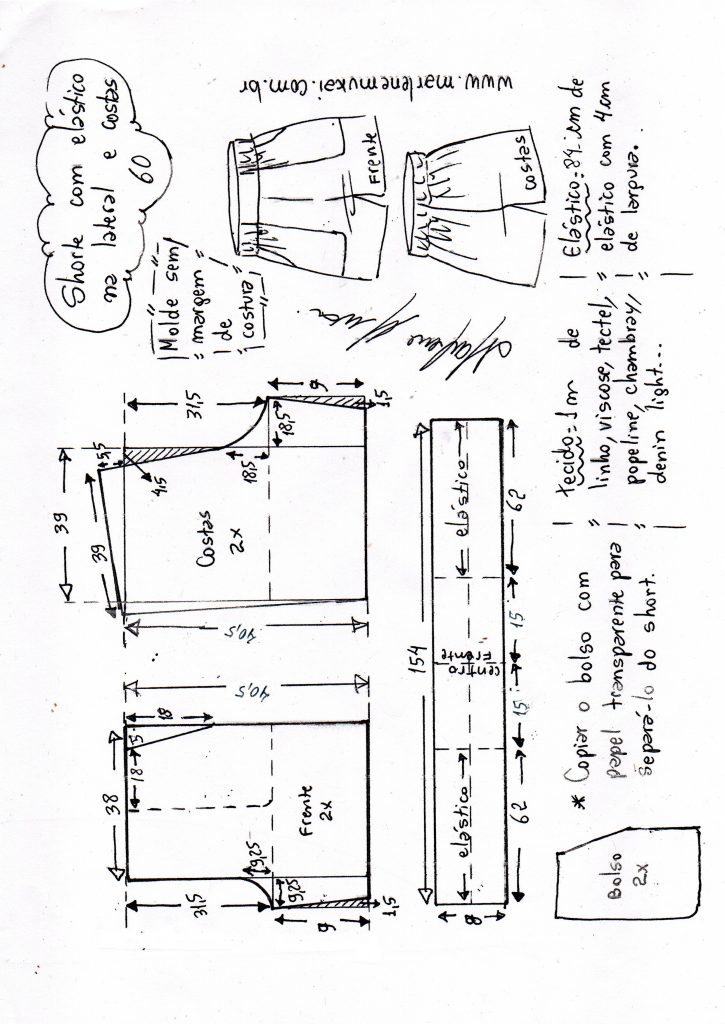 Shorte com elástico
na lateral e costas
60
Molde sem
margem
de
costura
www.marlenemukai.com.br
Frente
costas
39
39
5,5
4,5
31,5
18,5
18,5
9
1,5
Costas
2x
40,5
40,5
38
18
5
18
31,5
9,25
9,25
9
1,5
Frente
2x
154
elástico
centro
Frente
elástico
62
15
15
62
8
Bolso
2x
* Copiar o bolso com
papel transparente para
separá-lo do short.
tecido=1m de
linho, viscose, tectel,
popeline, chambray,
denin light...
Elástico=84 cm de
elástico com 4cm
de largura.